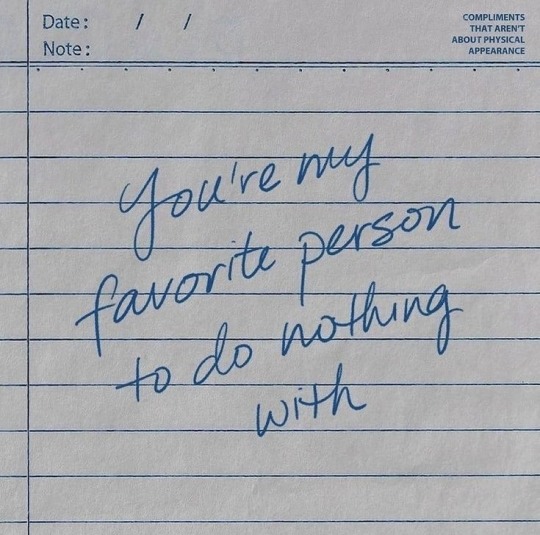 Date: / /
Note:
COMPLIMENTS
THAT AREN'T
ABOUT PHYSICAL
APPEARANCE
You're my
favorite person
to do nothing
with